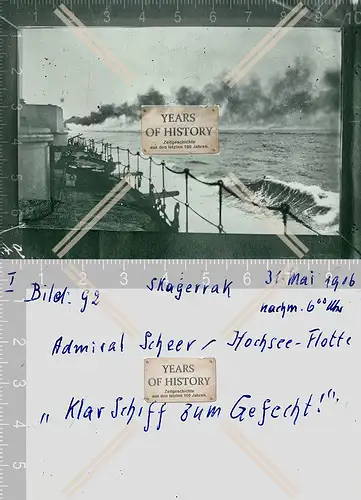 YEARS
OF HISTORY
Zeitgeschichte
aus den letzten 100 Jahren.
I Bild: 92 Skagerrak 31 Mai 1916
nachm. 6⁰⁰ Uhr
Admiral Scheer / Hochsee-Flotte
YEARS
OF HISTORY
Zeitgeschichte
aus den letzten 100 Jahren.
„Klar Schiff zum Gefecht!"